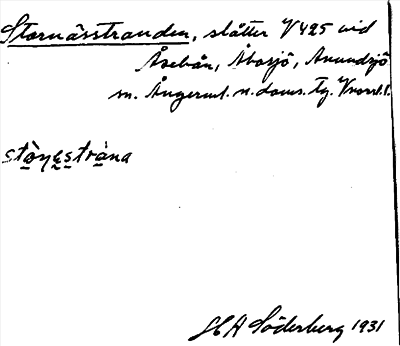 Stornässtranden, slåtter V425 vid
Åsebån, Åbosjö, Anundsjö
sn. Ångerml. n. doms. Tg. Vnorrl. l.
stòṇęstràna
H A Söderberg 1931